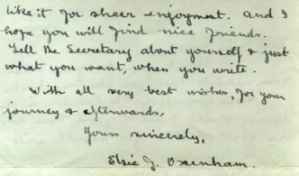 like it for sheer enjoyment. And I
hope you will find nice friends.
Tell the Secretary about yourself & just
what you want, when you write.
With all very best wishes, for your
journey & afterwards,
Yours sincerely,
Elsie J. Oxenham.